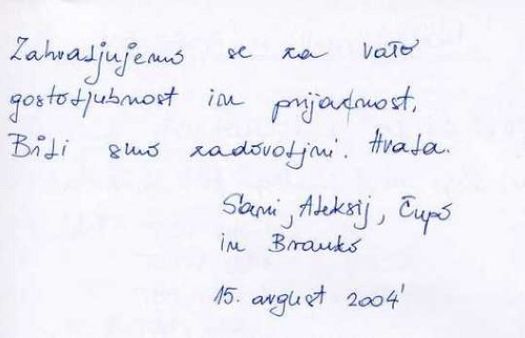 Zahvaljujemo se za vašo
gostoljubnost in prijaznost.
Bili smo zadovoljni. Hvala.
Sani, Aleksij, Čupo
in Branko
15. avgust 2004